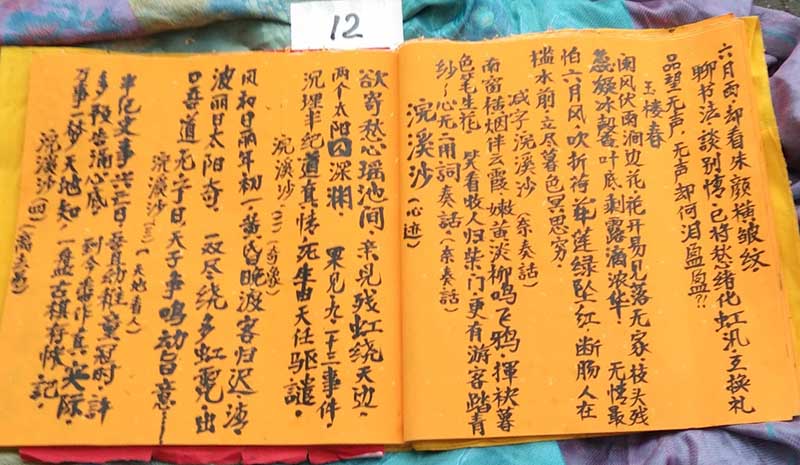 12
六月雨,却看朱颜横皱纹
聊书法谈别情,已将愁绪化虹汛互换礼
品望无声,无声却何泪盈盈?!
玉楼春
阆风伏雨涧边花,花开易见落无家,枝头残
蕊凝冰馨叶底剩露滴浓华。 无情最
怕六月风吹折荷茎莲绿坠红断肠人在
槛水前立尽暮色冥思穷。
减字浣溪沙(亲奏話)
南窗烟伴云霞,嫩苗淡柳鸣飞鸦。揮秧暮
色笔生花 笑看牧人归柴门,更有游客踏青
纱~心无二用詞奏話(亲奏話)
浣溪沙(心迹)
欲寄愁心瑶池间,亲見残虹绕天边。
两个太阳囚深渊。 罕见九一十三事件,
沉埋半纪道真情,死生由天任驱譴。
浣溪沙(二)(奇象)
风和日丽年初一黄昏晚渡客归迟,清
波丽日太阳奇。 一双尽绕多虹霓,出
口吾道无,子日天子争鸣动旨意……
浣溪沙(三)(天地看人)
半纪史事廿三日,垂直幼稚童冠时,許
多預告滿心底。 到今番作真实际,
万事一梦天地知,一盘古棋存快記。
浣溪沙(四)